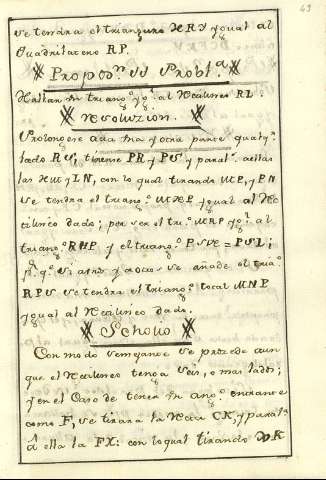 se tendra el triangulo HRS ygual al
Quadrilatero RP.
Propos.n VI Probl.a
Hallar un triang.o yg.l al Rectilineo RL.
Resoluzion.
Prolonguese a una y otra parte qualq.r
lado RS, tirense PR y PS y paral. a ellas
las HM y LN, con lo qual tirando MP, y PN
se tendra el triang.o MNP ygual al Rec-
tilineo dado; por ser el tri.o MRP yg.l al
triang.o RHP y el triang.o PSN = PSL;
p.r q.e si a unos y a otros se añade el tria.o
RPS se tendra el triang.o total MNP
ygual al Rectilineo dado.
Scholio
Con modo semejante se procede aun-
que el Rectilineo tenga seis, o mas lados;
y en el Caso de tener un ang.o entrante
como F, se tirara la Recta CK, y paral.
à ella la FX: con lo qual tirando K